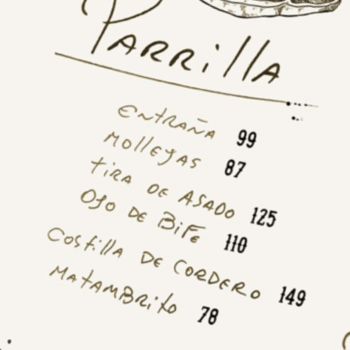 Parrilla
Entraña 99
Mollejas 87
Tira de Asado 125
Ojo de Bife 110
Costilla de Cordero 149
Matambrito 78